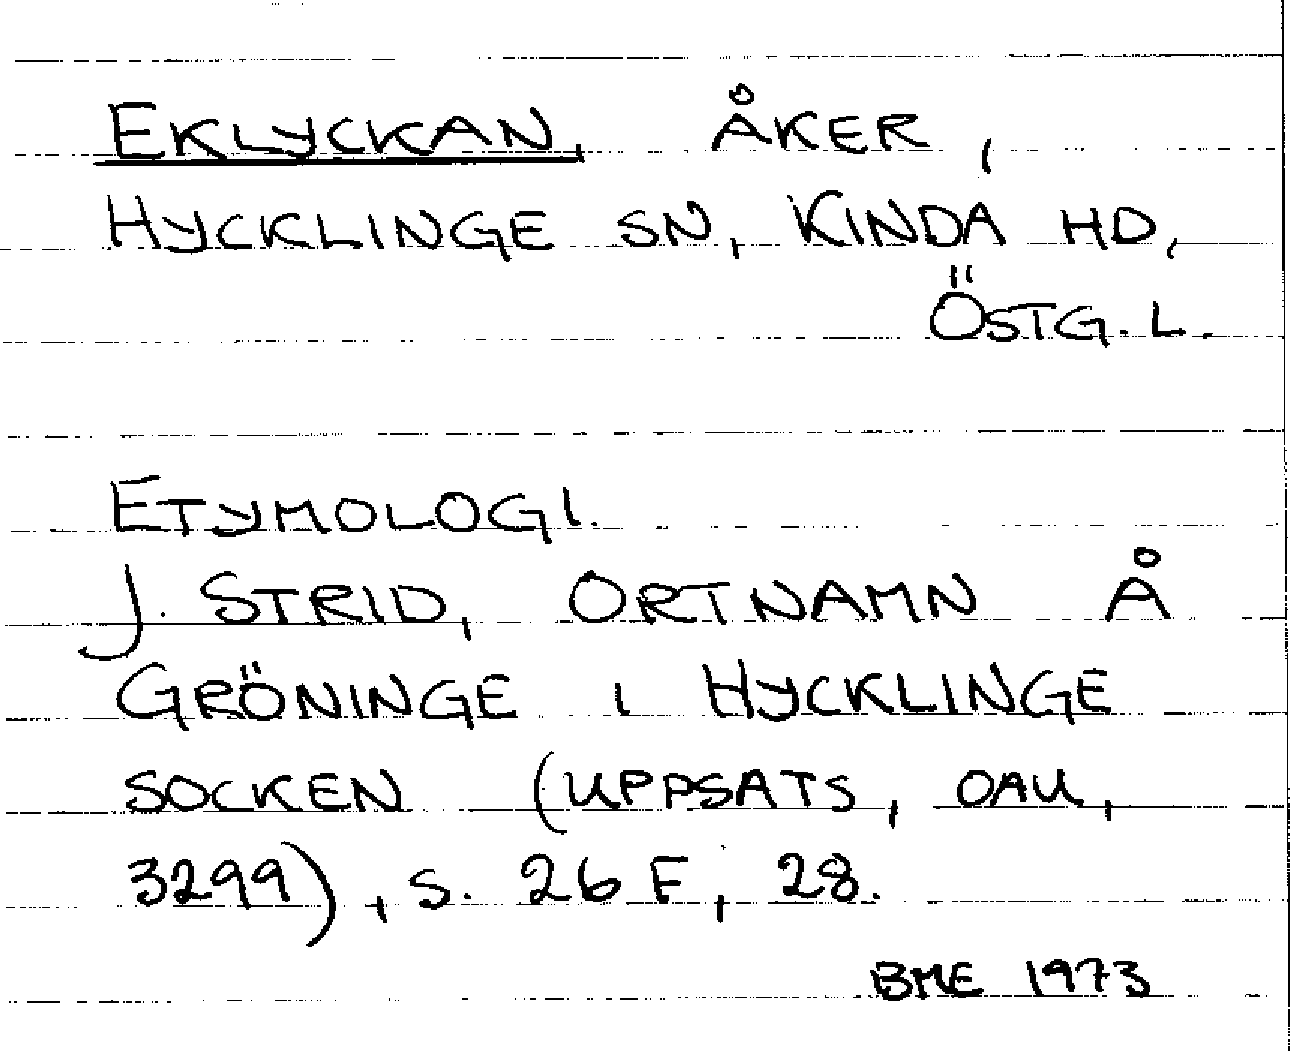 EKLYCKAN, ÅKER,
HYCKLINGE SN, KINDA HD,
ÖSTG. L.
ETYMOLOGI.
J. STRID, ORTNAMN Å
GRÖNINGE I HYCKLINGE
SOCKEN (UPPSATS, OAU,
3299), S. 26 F, 28.
BME 1973